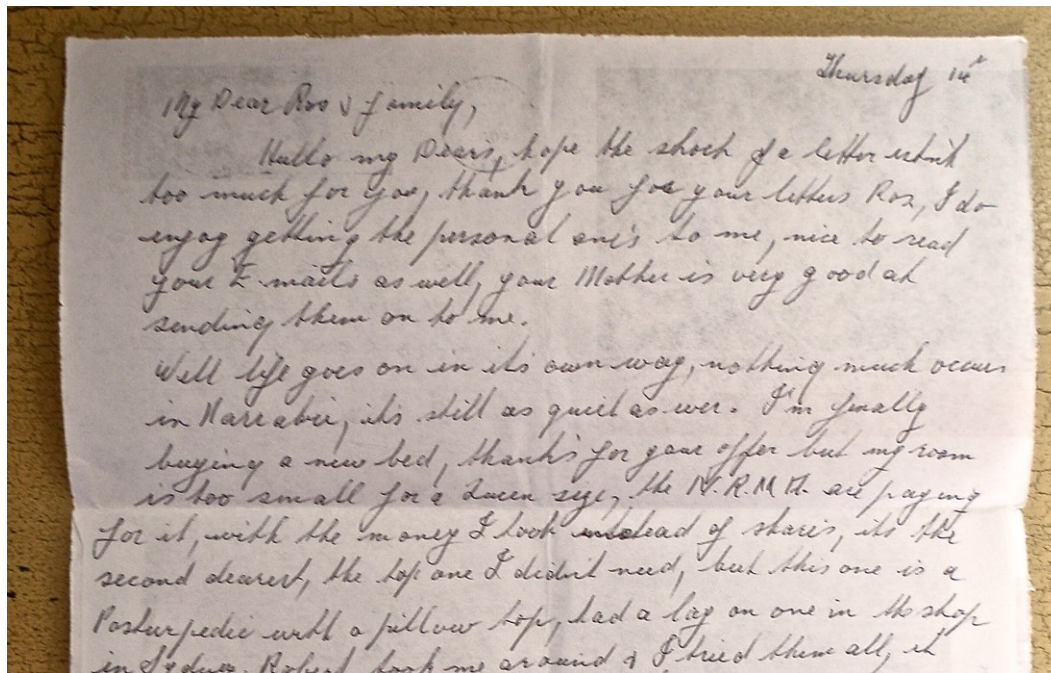 Thursday 14th
My Dear Ros & family,
Hullo my Dears, hope the shock of a letter isn't
too much for you, thank you for your letters Ros, I do
enjoy getting the personal one's to me, nice to read
your E-mails as well, your Mother is very good at
sending them on to me.
Well life goes on in its own way, nothing much occurs
in Narrabri, its still as quiet as ever. I'm finally
buying a new bed, thanks for your offer but my room
is too small for a Queen size, the N.R.M.A. are paying
for it, with the money I took instead of shares, its the
second dearest, the top one I didn't need, but this one is a
Posturpedic with a pillow top, had a lay on one in the shop
in Sydney. Robert took me around & I tried them all, it